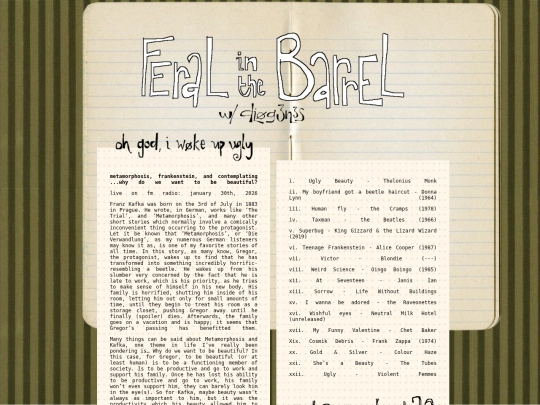 Feral in the Barrel
w/
oh god, i woke up ugly
metamorphosis, frankenstein, and contemplating
...why do we want to be beautiful?
live on fm radio: january 30th, 2026
Franz Kafka was born on the 3rd of July in 1883
in Prague. He wrote, in German, works like 'The
Trial', and 'Metamorphosis', and many other
short stories which normally involve a comically
inconvenient thing occurring to the protagonist.
Let it be known that 'Metamorphosis', or 'Die
Verwandlung', as my numerous German listeners
may know it as, is one of my favorite stories of
all time. In this story, as many know, Gregor,
the protagonist, wakes up to find that he has
transformed into something incredibly horrific-
resembling a beetle. He wakes up from his
slumber very concerned by the fact that he is
late to work, which is his priority, as he tries
to make sense of himself in his new body. His
family is horrified, shutting him inside of his
room, letting him out only for small amounts of
time, until they begin to treat his room as a
storage closet, pushing Gregor away until he
finally (spoiler) dies. Afterwards, the family
goes on a vacation and is happy; it seems that
Gregor's passing has benefitted them.
Many things can be said about Metamorphosis and
Kafka, one theme in life I've really been
pondering is… Why do we want to be beautiful? In
this case, for Gregor, to be beautiful (or at
least human) is to be a functioning member of
society. Is to be productive and go to work and
support his family. Once he has lost his ability
to be productive and go to work, his family
won't even support him, they can barely look him
in the eye(s). So for Kafka, maybe beauty wasn't
always as important to him, but it was the
productivity which his beauty allowed him to
i. Ugly Beauty - Thelonius Monk
ii. My boyfriend got a beetle haircut - Donna
Lynn (1964)
iii. Human fly - the Cramps (1978)
iv. Taxman - the Beatles (1966)
v. Superbug - King Gizzard & the Lizard Wizard
(2019)
vi. Teenage Frankenstein - Alice Cooper (1967)
vii. Victor - Blondie (---)
viii. Weird Science - Oingo Boingo (1985)
ix. At Seventeen - Janis Ian
xiii. Sorrow - Life Without Buildings
xv. I wanna be adored - the Raveonettes
xvi. Wishful eyes - Neutral Milk Hotel
(unreleased)
xvii. My Funny Valentine - Chet Baker
Xix. Cosmik Debris - Frank Zappa (1974)
xx. Gold & Silver - Colour Haze
xxi. She's a Beauty - The Tubes
xxii. Ugly - Violent Femmes